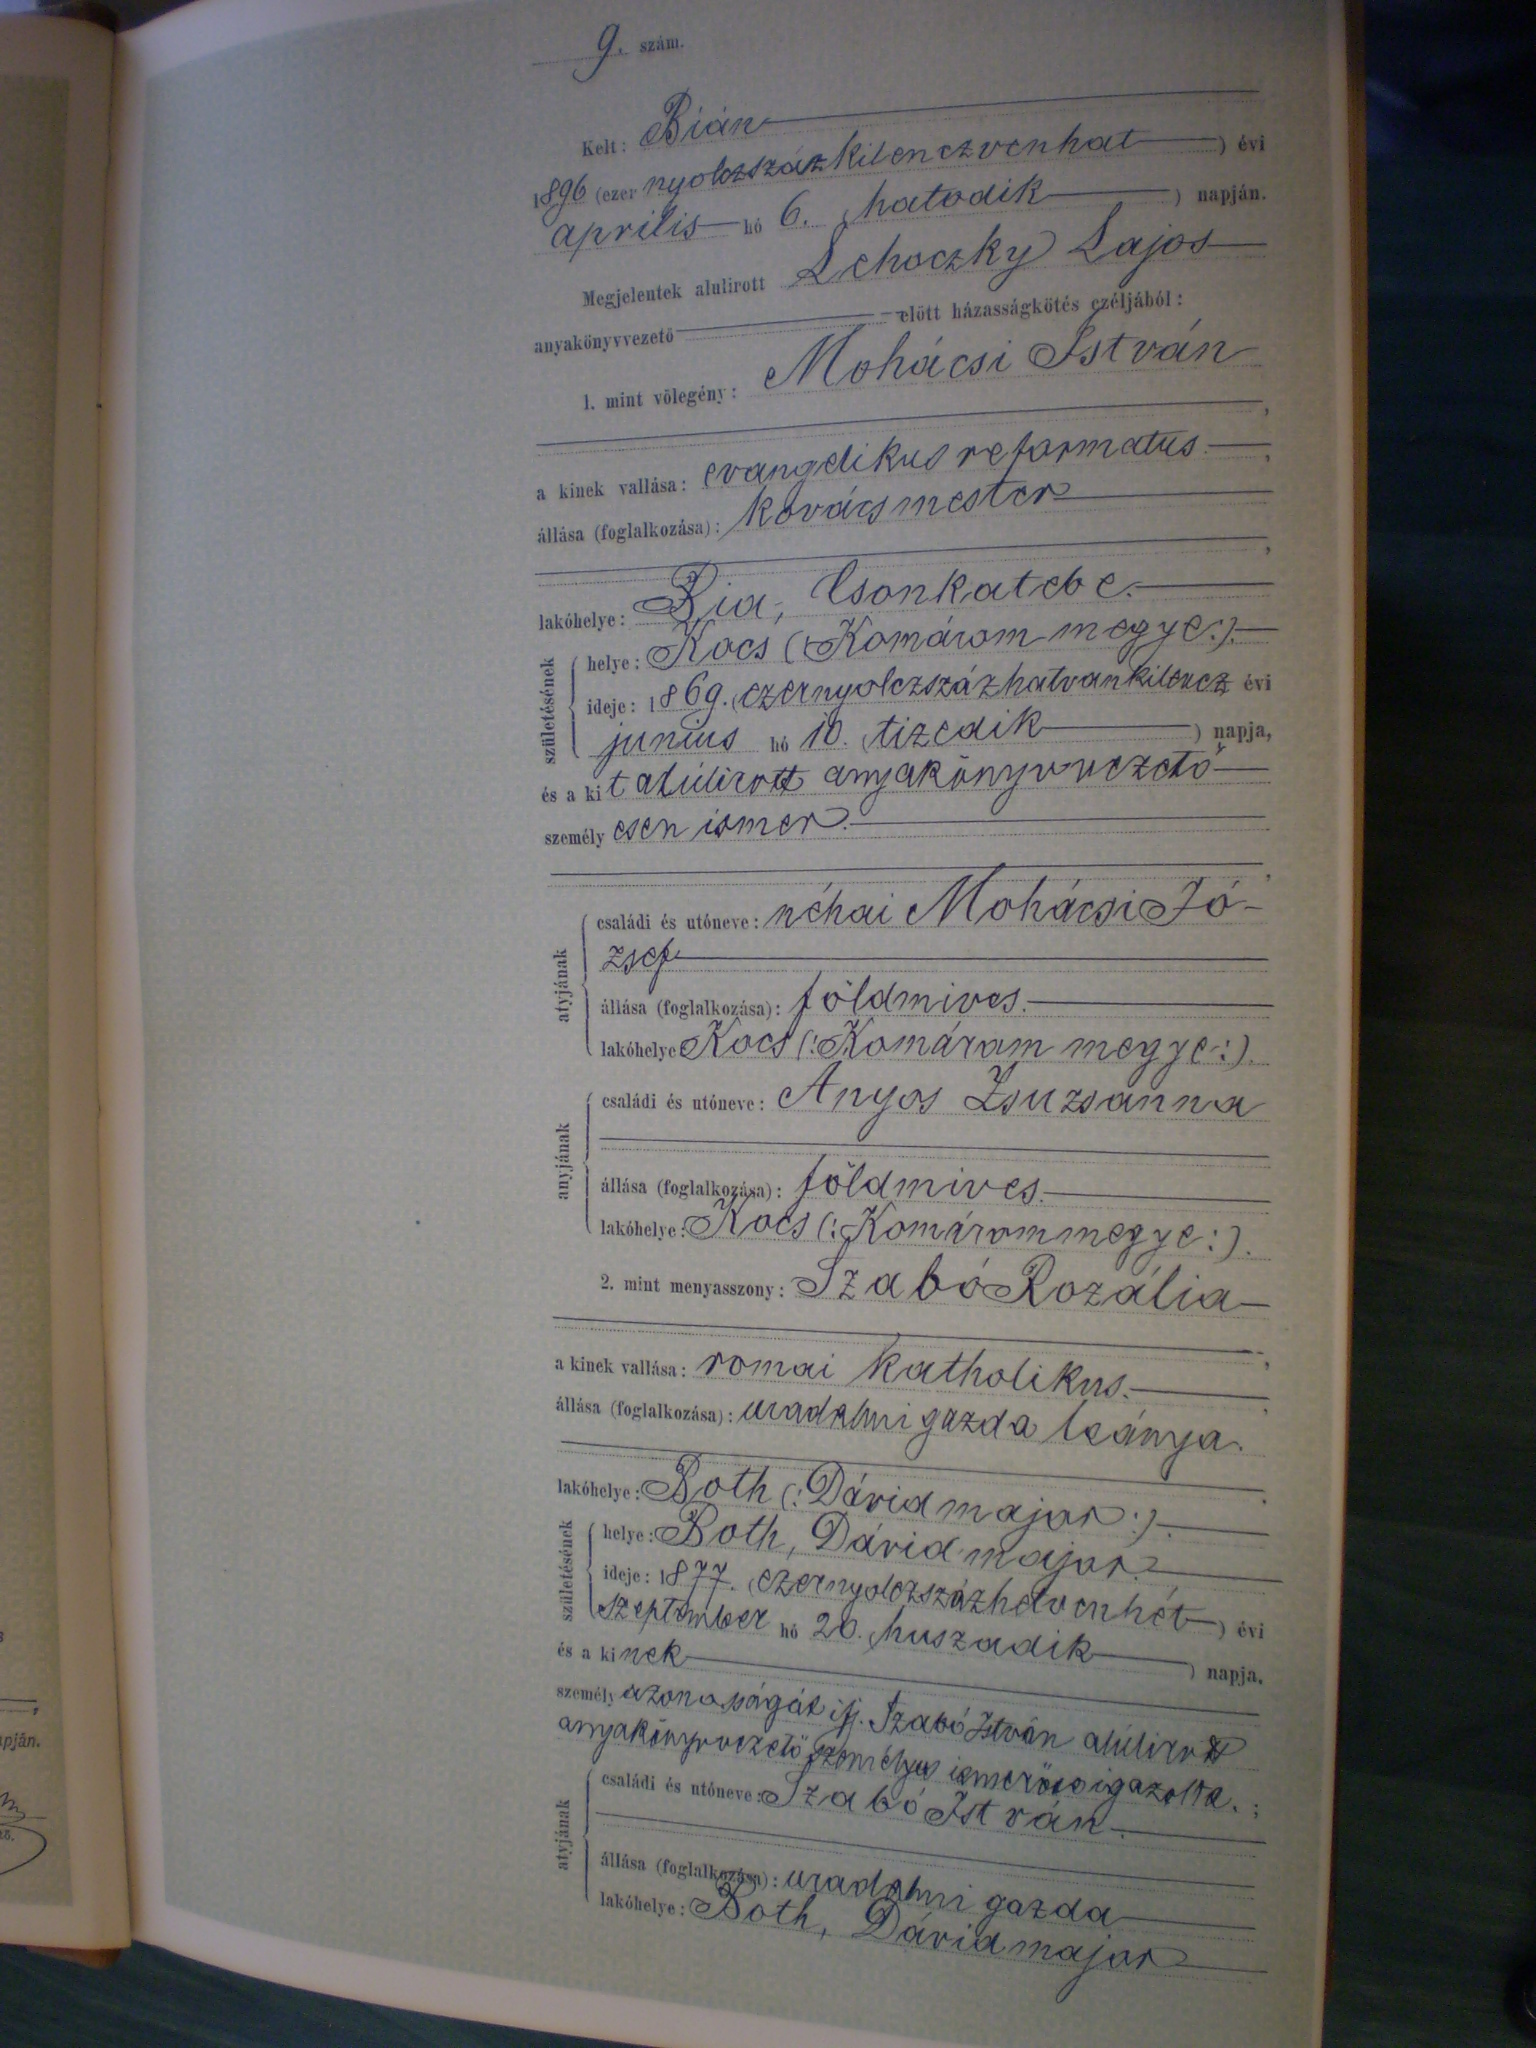 9. szám.
Kelt: Bián
1896 (ezer nyolczszázkilenczvenhat) évi
április hó 6. (hatodik) napján.
Megjelentek alulirott Lehoczky Lajos
anyakönyvvezető előtt házasságkötés czéljából:
1. mint vőlegény: Mohácsi István
a kinek vallása: evangelikus reformatus.
állása (foglalkozása): kovácsmester
lakóhelye: Bia, Csonkatebe.
születésének
helye: Kocs (:Komárom megye:).
ideje: 1869. (ezernyolczszázhatvankilencz évi
junius hó 10. (tizedik) napja,
és a kit alúlirott anyakönyvvezető
személyesen ismer.
atyjának
családi és utóneve: néhai Mohácsi Jó-
zsef
állása (foglalkozása): földmives.
lakóhelye: Kocs (:Komárom megye:).
anyjának
családi és utóneve: Anyos Zsuzsanna
állása (foglalkozása): földmives.
lakóhelye: Kocs (:Komárommegye:).
2. mint menyasszony: Szabó Rozália
a kinek vallása: romai katholikus.
állása (foglalkozása): uradalmi gazda leánya.
lakóhelye: Both (:Dávidmajor:).
születésének
helye: Both, Dávidmajor.
ideje: 1877. (ezernyolczszázhetvenhét) évi
szeptember hó 20. (huszadik) napja,
és a kinek
személyazonosságát ifj. Szabó István alúlirott
anyakönyvvezető személyes ismerőse igazolta.;
atyjának
családi és utóneve: Szabó István.
állása (foglalkozása): uradalmi gazda
lakóhelye: Both, Dávidmajor
apján.